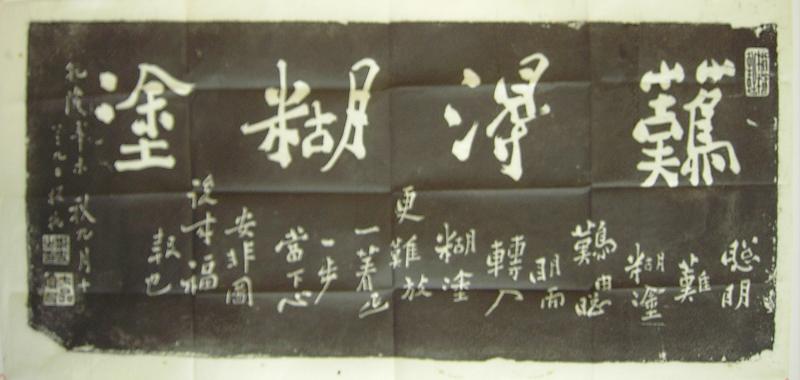 難得糊塗
聰明
難
糊塗
難由聰
明而
轉入
糊塗
更難放
一著退
一步
當下心
安非圖
後来福
報也
乾隆辛未秋九月十
有九日板橋